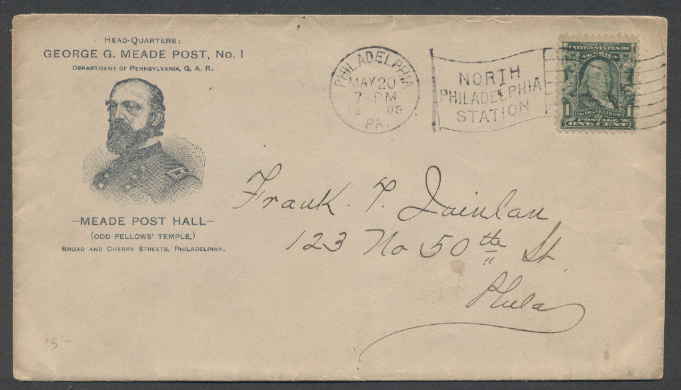 HEAD-QUARTERS:
GEORGE G. MEADE POST, No. 1
DEPARTMENT OF PENNSYLVANIA, G. A. R.
MEADE POST HALL
(ODD FELLOWS' TEMPLE,)
BROAD AND CHERRY STREETS, PHILADELPHIA.
PHILADELPHIA
MAY 20
7-PM
PA.
NORTH
PHILADELPHIA
STATION
UNITED STATES OF
1 1
POSTAGE
ONE CENT
Frank T.
123 No 50th St
Phila
15-